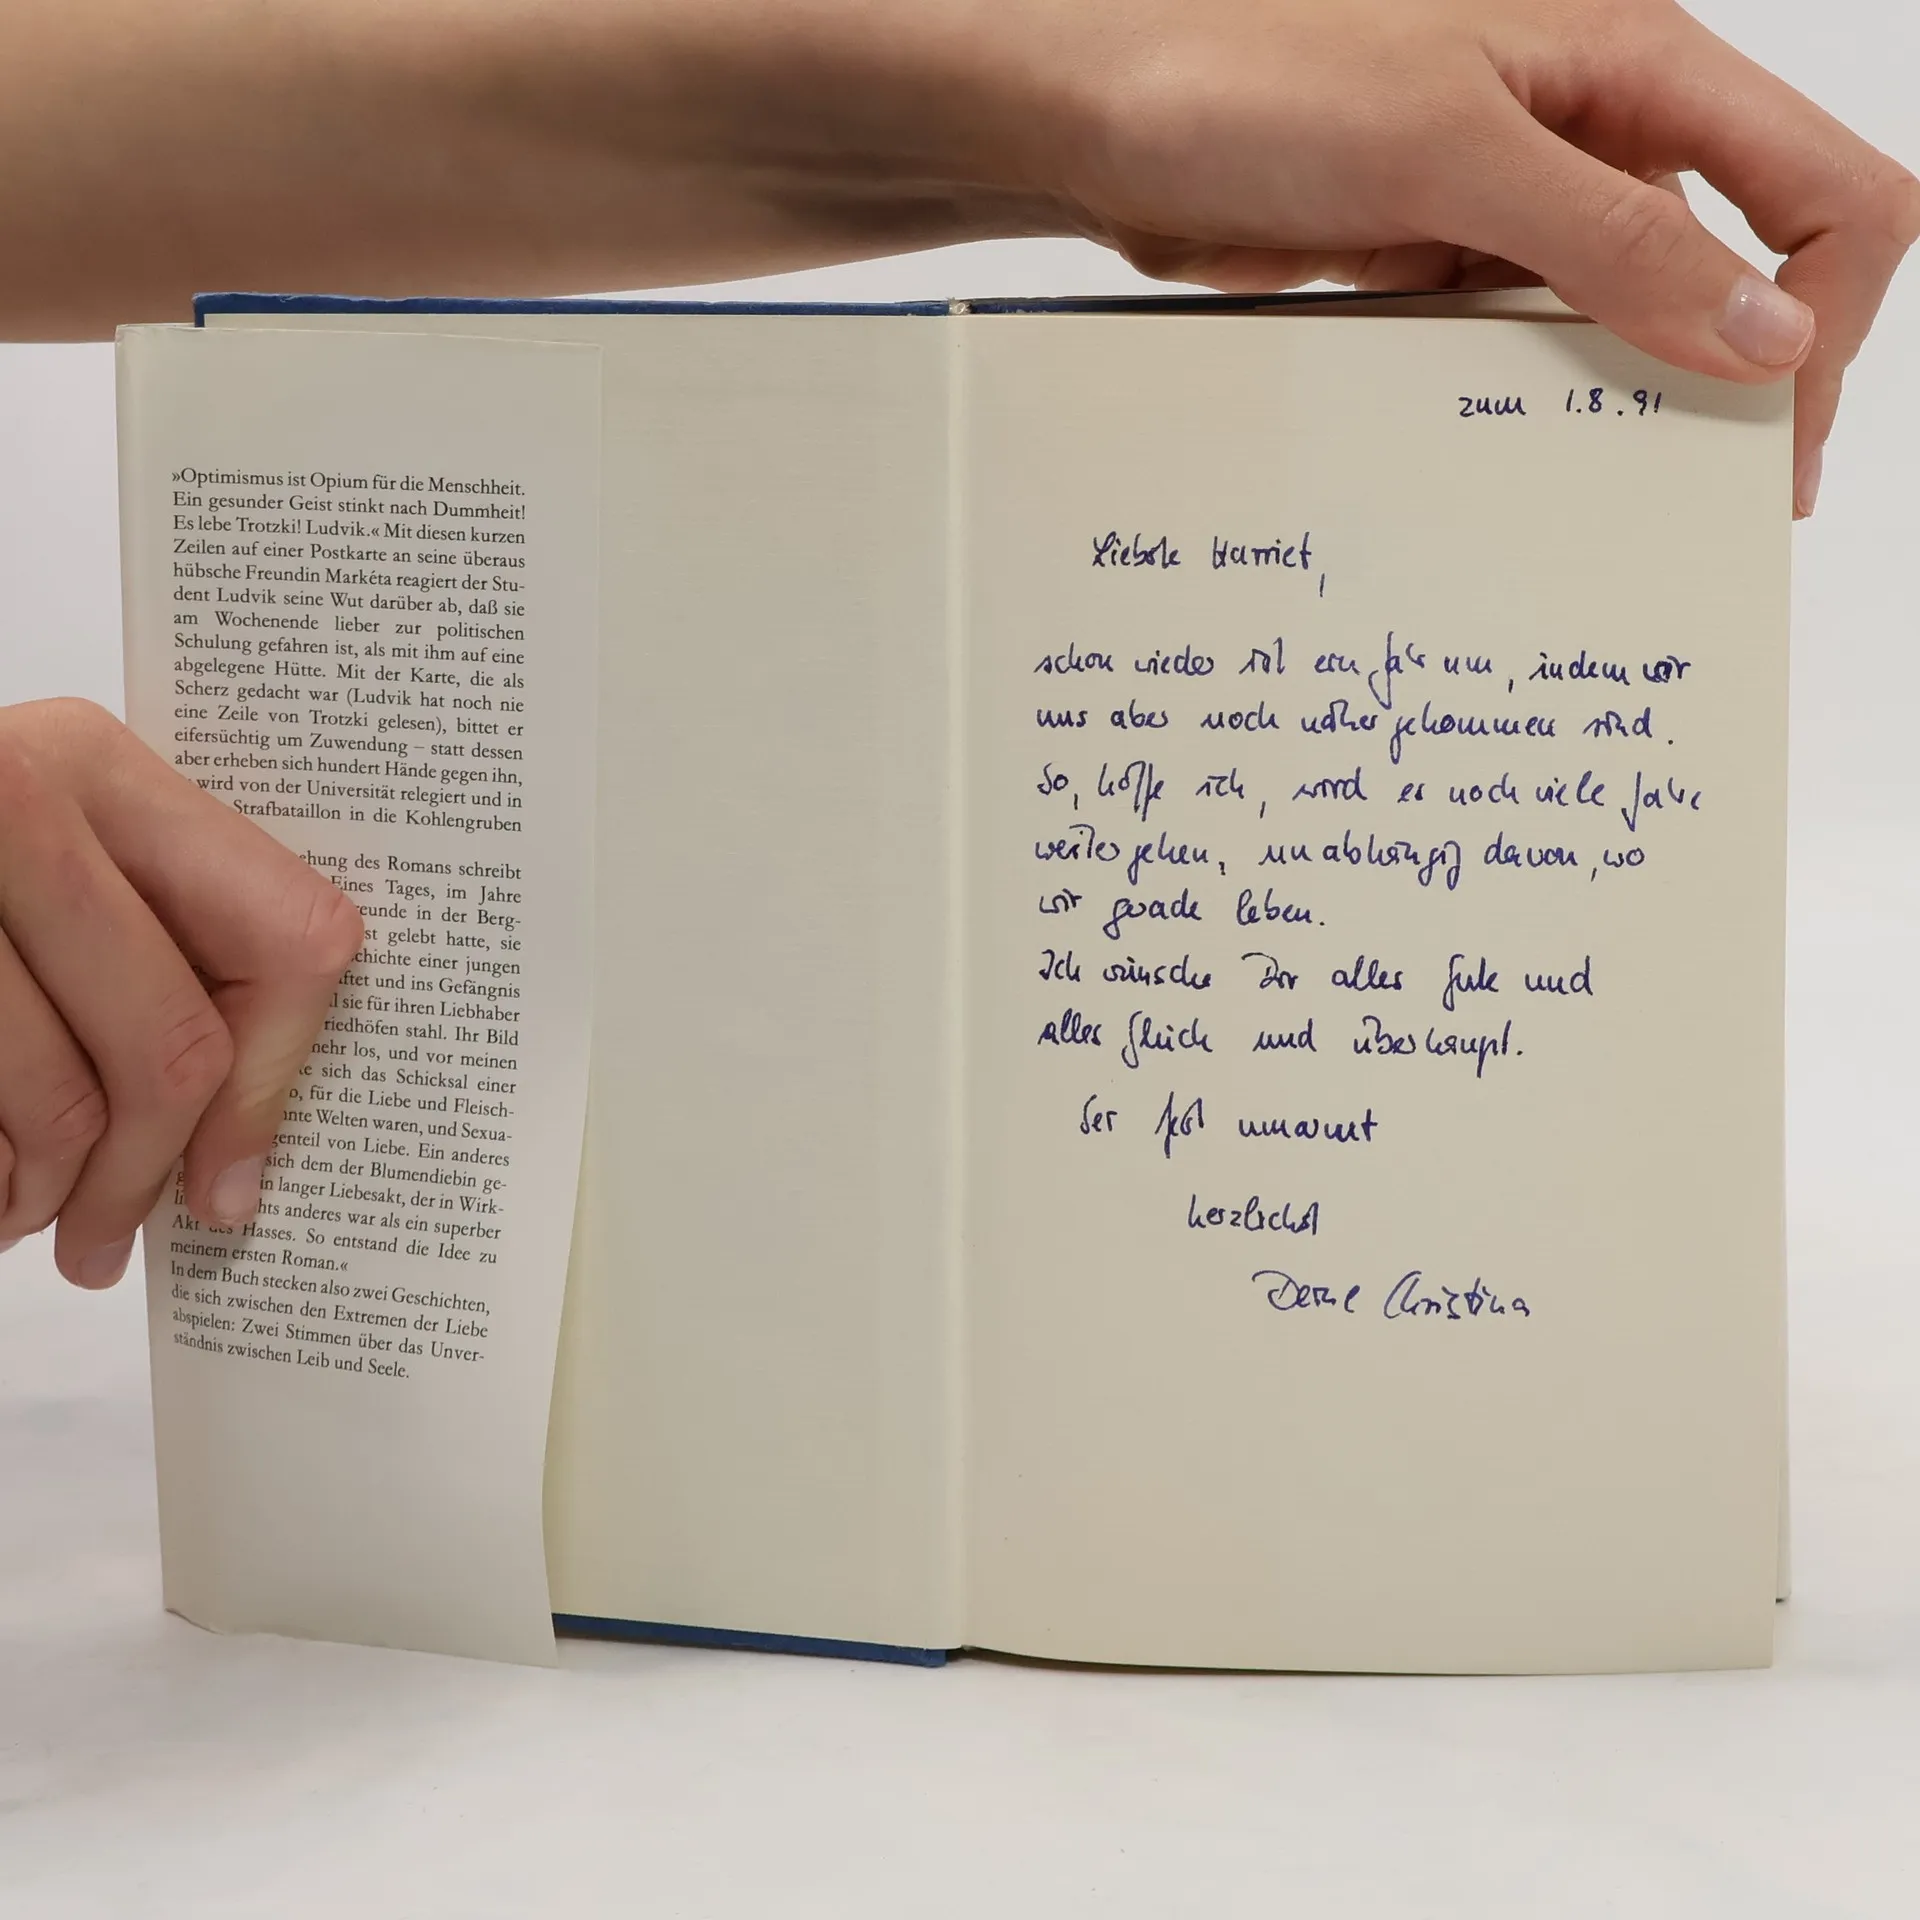 »Optimismus ist Opium für die Menschheit.
Ein gesunder Geist stinkt nach Dummheit!
Es lebe Trotzki! Ludvik.« Mit diesen kurzen
Zeilen auf einer Postkarte an seine überaus
hübsche Freundin Markéta reagiert der Stu-
dent Ludvik seine Wut darüber ab, daß sie
am Wochenende lieber zur politischen
Schulung gefahren ist, als mit ihm auf eine
abgelegene Hütte. Mit der Karte, die als
Scherz gedacht war (Ludvik hat noch nie
eine Zeile von Trotzki gelesen), bittet er
eifersüchtig um Zuwendung – statt dessen
aber erheben sich hundert Hände gegen ihn,
wird von der Universität relegiert und in
Strafbataillon in die Kohlengruben
des Romans schreibt
Eines Tages, im Jahre
in der Berg-
gelebt hatte, sie
einer jungen
und ins Gefängnis
sie für ihren Liebhaber
stahl. Ihr Bild
los, und vor meinen
sich das Schicksal einer
für die Liebe und Fleisch-
Welten waren, und Sexua-
von Liebe. Ein anderes
sich dem der Blumendiebin ge-
langer Liebesakt, der in Wirk-
anderes war als ein superber
Akt des Hasses. So entstand die Idee zu
meinem ersten Roman.«
In dem Buch stecken also zwei Geschichten,
die sich zwischen den Extremen der Liebe
abspielen: Zwei Stimmen über das Unver-
ständnis zwischen Leib und Seele.
zum 1.8.91
Liebste Harriet,
schon wieder ist ein Jahr um, indem wir
uns aber noch näher gekommen sind.
So, hoffe ich, wird es noch viele Jahre
weitergehen, unabhängig davon, wo
wir gerade leben.
Ich wünsche Dir alles Gute und
alles Glück und überhaupt.
Sei fest umarmt
herzlichst
Deine Christina